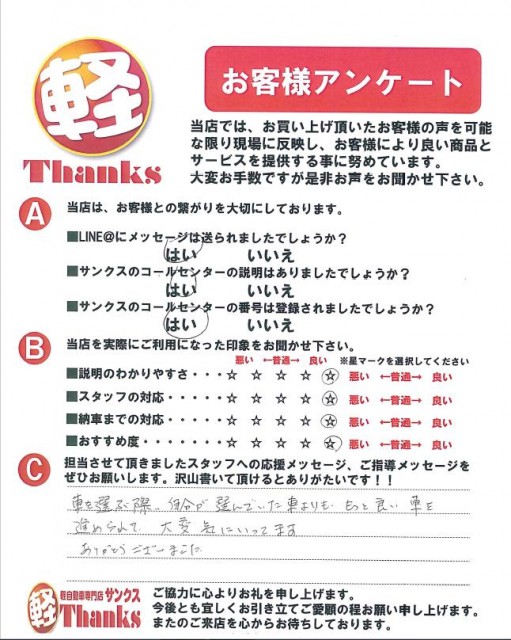 軽
Thanks
お客様アンケート
当店では、お買い上げ頂いたお客様の声を可能
な限り現場に反映し、お客様により良い商品と
サービスを提供する事に努めています。
大変お手数ですが是非お声をお聞かせ下さい。
A 当店は、お客様との繋がりを大切にしております。
■LINE@にメッセージは送られましたでしょうか?
はい いいえ
■サンクスのコールセンターの説明はありましたでしょうか?
はい いいえ
■サンクスのコールセンターの番号は登録されましたでしょうか?
はい いいえ
B 当店を実際にご利用になった印象をお聞かせ下さい。
悪い ←普通→ 良い ※星マークを選択してください
■説明のわかりやすさ・・・・☆ ☆ ☆ ☆ ☆ 悪い ←普通→ 良い
■スタッフの対応・・・・・☆ ☆ ☆ ☆ ☆ 悪い ←普通→ 良い
■納車までの対応・・・・・☆ ☆ ☆ ☆ ☆ 悪い ←普通→ 良い
■おすすめ度・・・・・・・☆ ☆ ☆ ☆ ☆ 悪い ←普通→ 良い
C 担当させて頂きましたスタッフへの応援メッセージ、ご指導メッセージを
ぜひお願いします。沢山書いて頂けるとありがたいです!!
車を選ぶ際、自分が選んでいた車よりも もっと良い 車を
進められて、大変気にいってます
ありがとうございました
軽 軽自動車専門店 サンクス
Thanks
ご協力に心よりお礼を申し上げます。
今後とも宜しくお引き立てご愛顧の程お願い申し上げます。
またのご来店を心からお待ちしております。